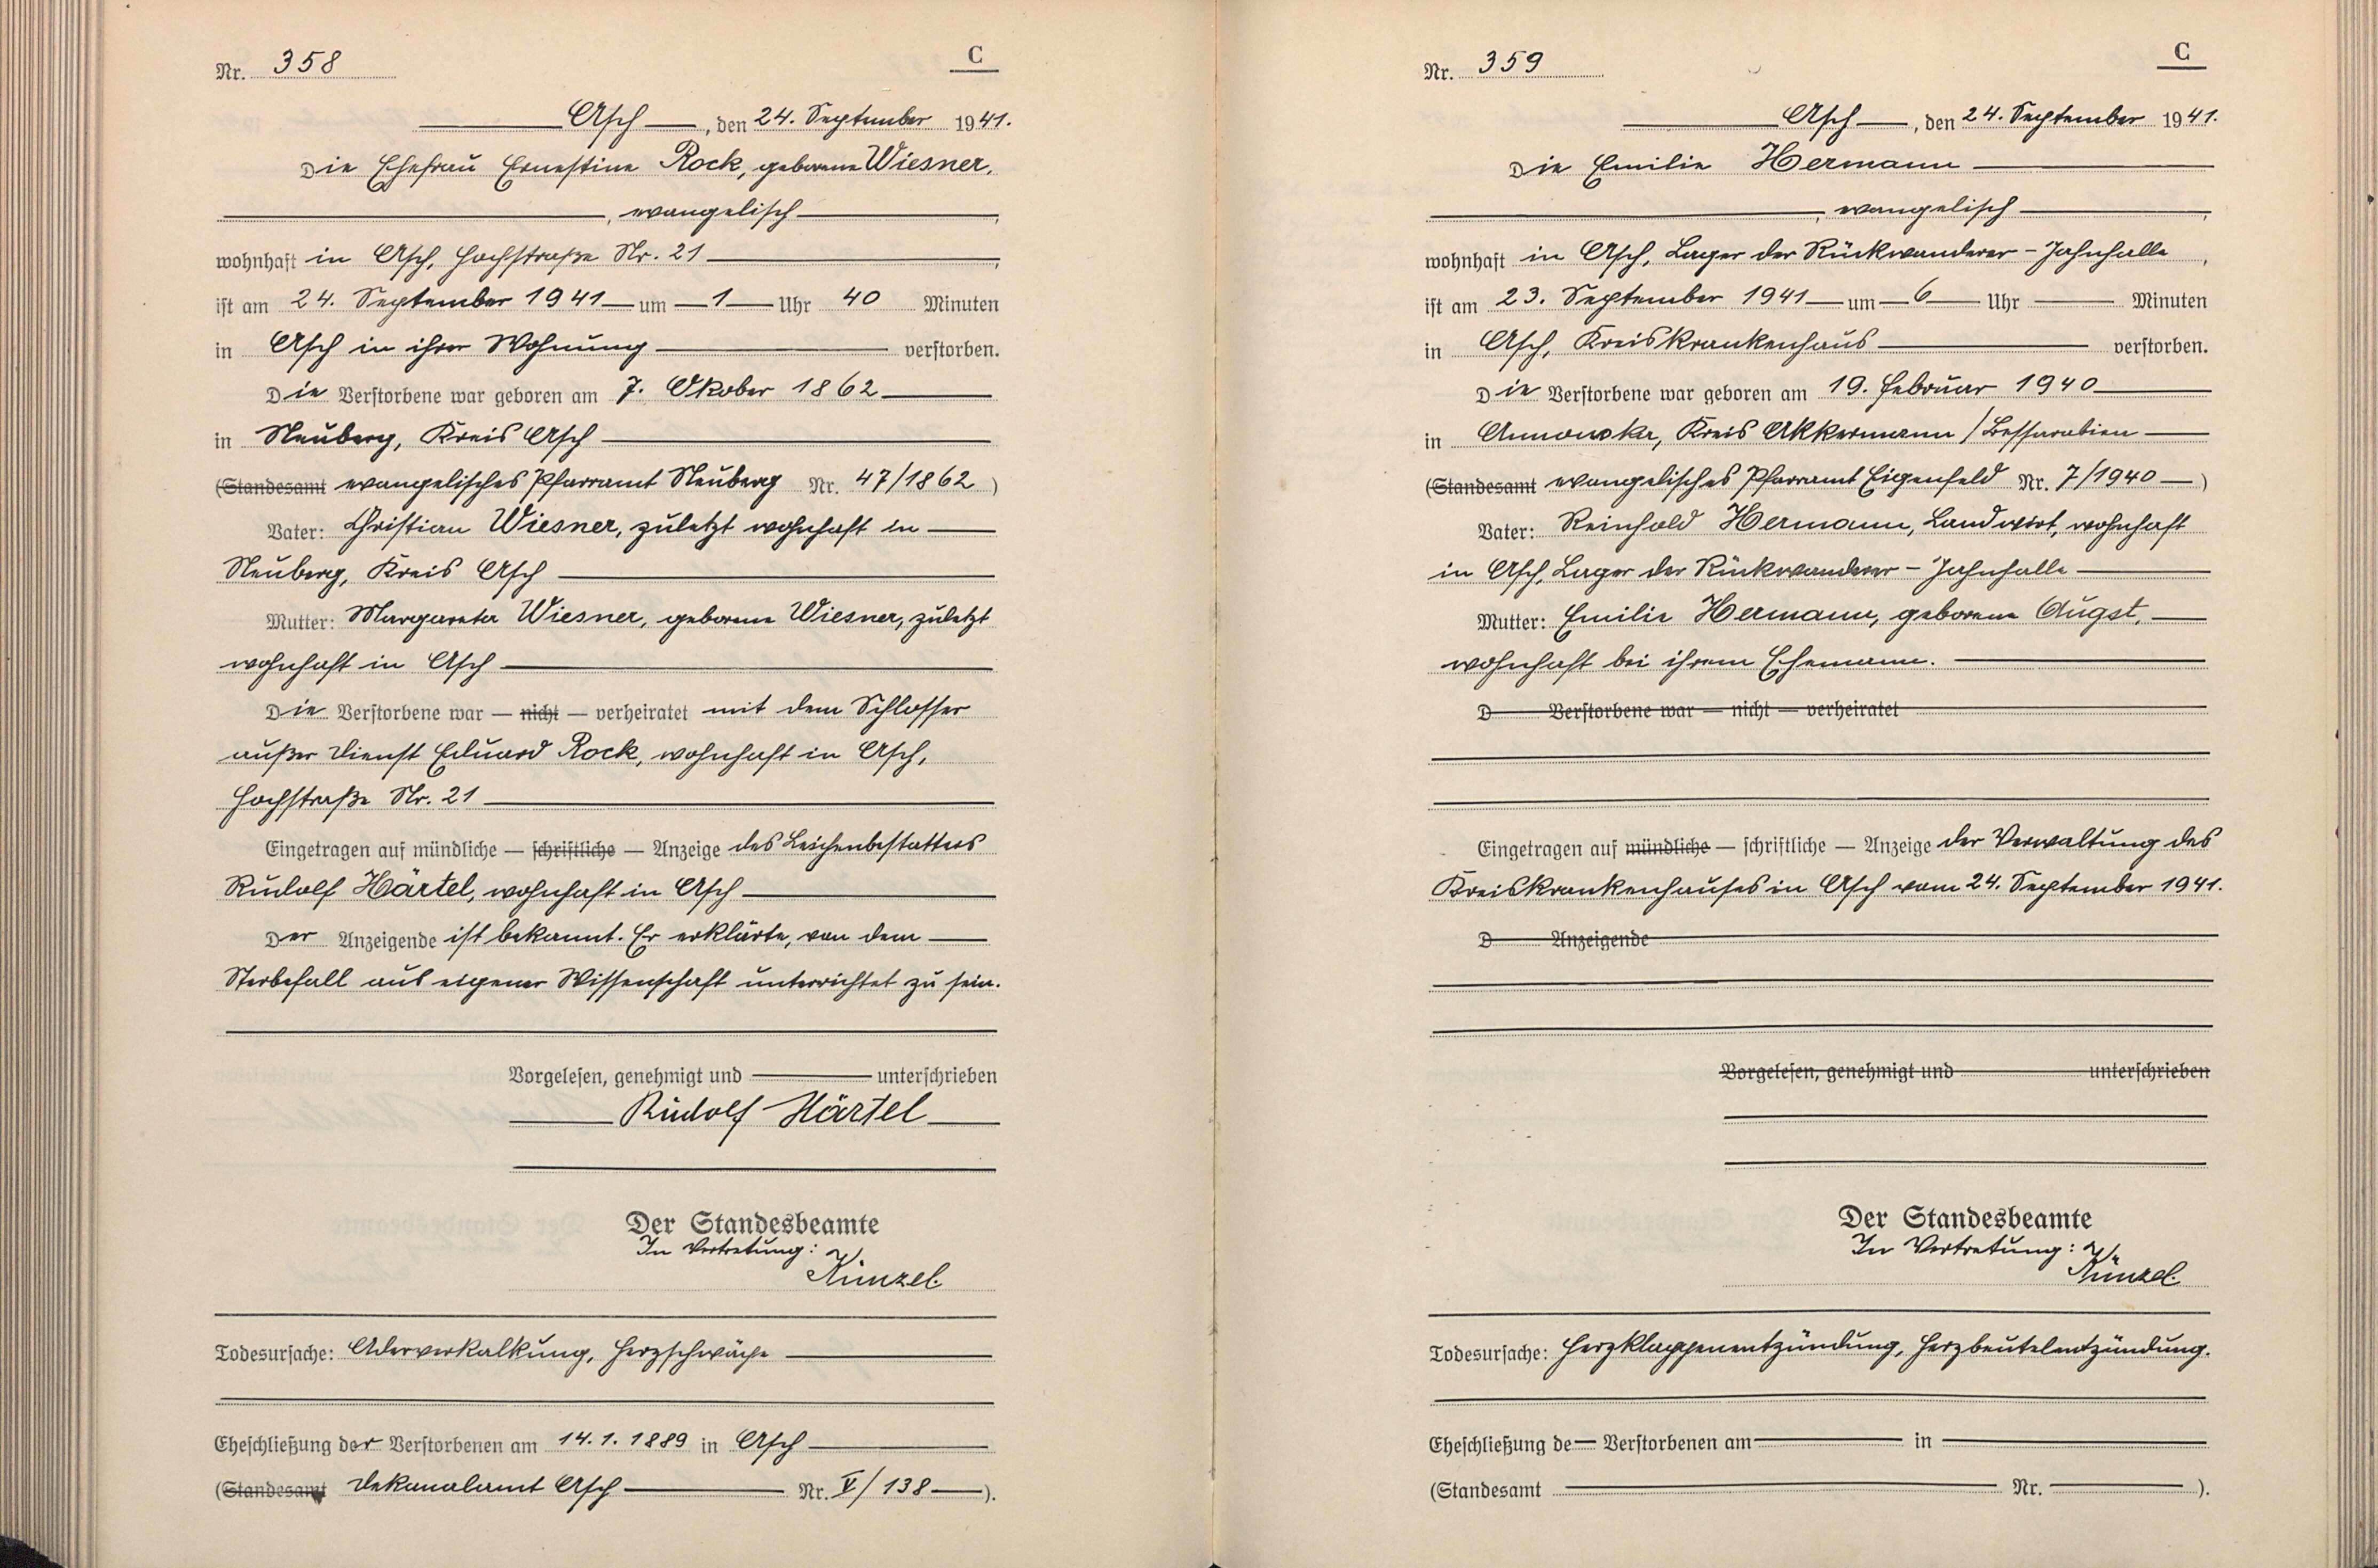 Nr. 358
C
Asch, den 24. September 1941.
Die Ehefrau Ernestine Rock, geborene Wiesner,
, evangelisch,
wohnhaft in Asch, Hochstraße Nr. 21,
ist am 24. September 1941 um 1 Uhr 40 Minuten
in Asch in ihrer Wohnung verstorben.
Die Verstorbene war geboren am 7. Oktober 1862
in Neuberg, Kreis Asch
(Standesamt evangelisches Pfarramt Neuberg Nr. 47/1862)
Vater: Christian Wiesner, zuletzt wohnhaft in
Neuberg, Kreis Asch
Mutter: Margareta Wiesner, geborene Wiesner, zuletzt
wohnhaft in Asch
Die Verstorbene war — nicht — verheiratet mit dem Schlosser
außer Dienst Eduard Rock, wohnhaft in Asch,
Hochstraße Nr. 21
Eingetragen auf mündliche — schriftliche — Anzeige des Leichenbestatters
Rudolf Härtel, wohnhaft in Asch
Der Anzeigende ist bekannt. Er erklärte, von dem
Sterbefall aus eigener Wissenschaft unterrichtet zu sein.
Vorgelesen, genehmigt und unterschrieben
Rudolf Härtel
Der Standesbeamte
In Vertretung:
Künzel.
Todesursache: Aderverkalkung, Herzschwäche
Eheschließung der Verstorbenen am 14.1.1889 in Asch
(Standesamt Dekanalamt Asch Nr. V/138).
Nr. 359
C
Asch, den 24. September 1941.
Die Emilie Hermann
, evangelisch,
wohnhaft in Asch, Lager der Rückwanderer - Jahnhalle,
ist am 23. September 1941 um 6 Uhr Minuten
in Asch, Kreiskrankenhaus verstorben.
Die Verstorbene war geboren am 19. Februar 1940
in Annowka, Kreis Akkermann / Bessarabien
(Standesamt evangelisches Pfarramt Eigenfeld Nr. 7/1940)
Vater: Reinhold Hermann, Landwirt, wohnhaft
in Asch, Lager der Rückwanderer - Jahnhalle
Mutter: Emilie Hermann, geborene Augst,
wohnhaft bei ihrem Ehemann.
D Verstorbene war — nicht — verheiratet
Eingetragen auf mündliche — schriftliche — Anzeige der Verwaltung des
Kreiskrankenhauses in Asch vom 24. September 1941.
D Anzeigende
Vorgelesen, genehmigt und unterschrieben
Der Standesbeamte
In Vertretung:
Künzel.
Todesursache: Herzklappenentzündung, Herzbeutelentzündung.
Eheschließung de Verstorbenen am in
(Standesamt Nr. ).